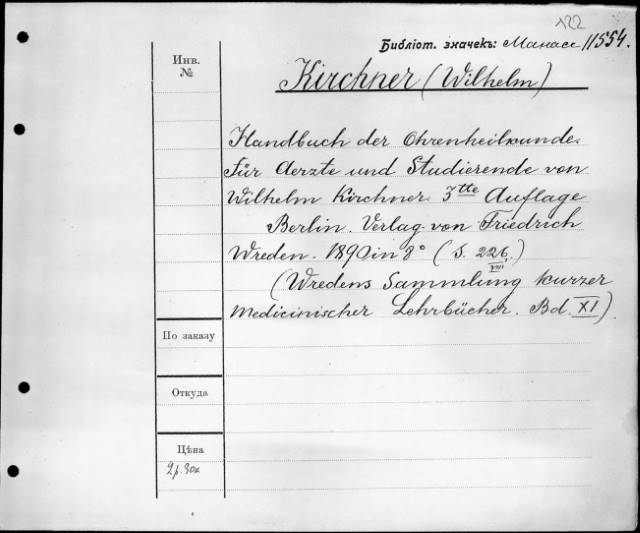 122
Библіот. значекъ: Манасс 11554.
Инв.
№
Kirchner (Wilhelm)
Handbuch der Ohrenheilkunde.
Für Aerzte und Studierende von
Wilhelm Kirchner. 3tte Auflage
Berlin. Verlag von Friedrich
Wreden. 1890 in 8° (S. 226.)
VIII
(Wredens Sammlung kurzer
Medicinischer Lehrbücher. Bd. XI)
По заказу
Откуда
Цѣна
2 р. 30 к